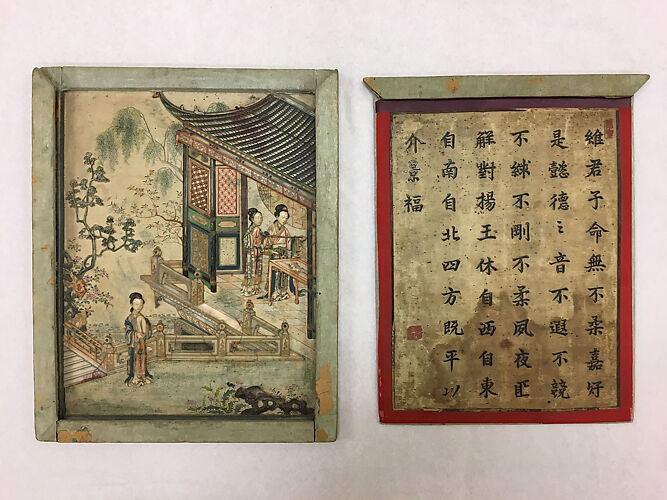 維君子命無不柔嘉好
是懿德〻音不遐不競
不絿不剛不柔夙夜匪
觧對揚王休自西自東
自南自北四方既平以
介景福